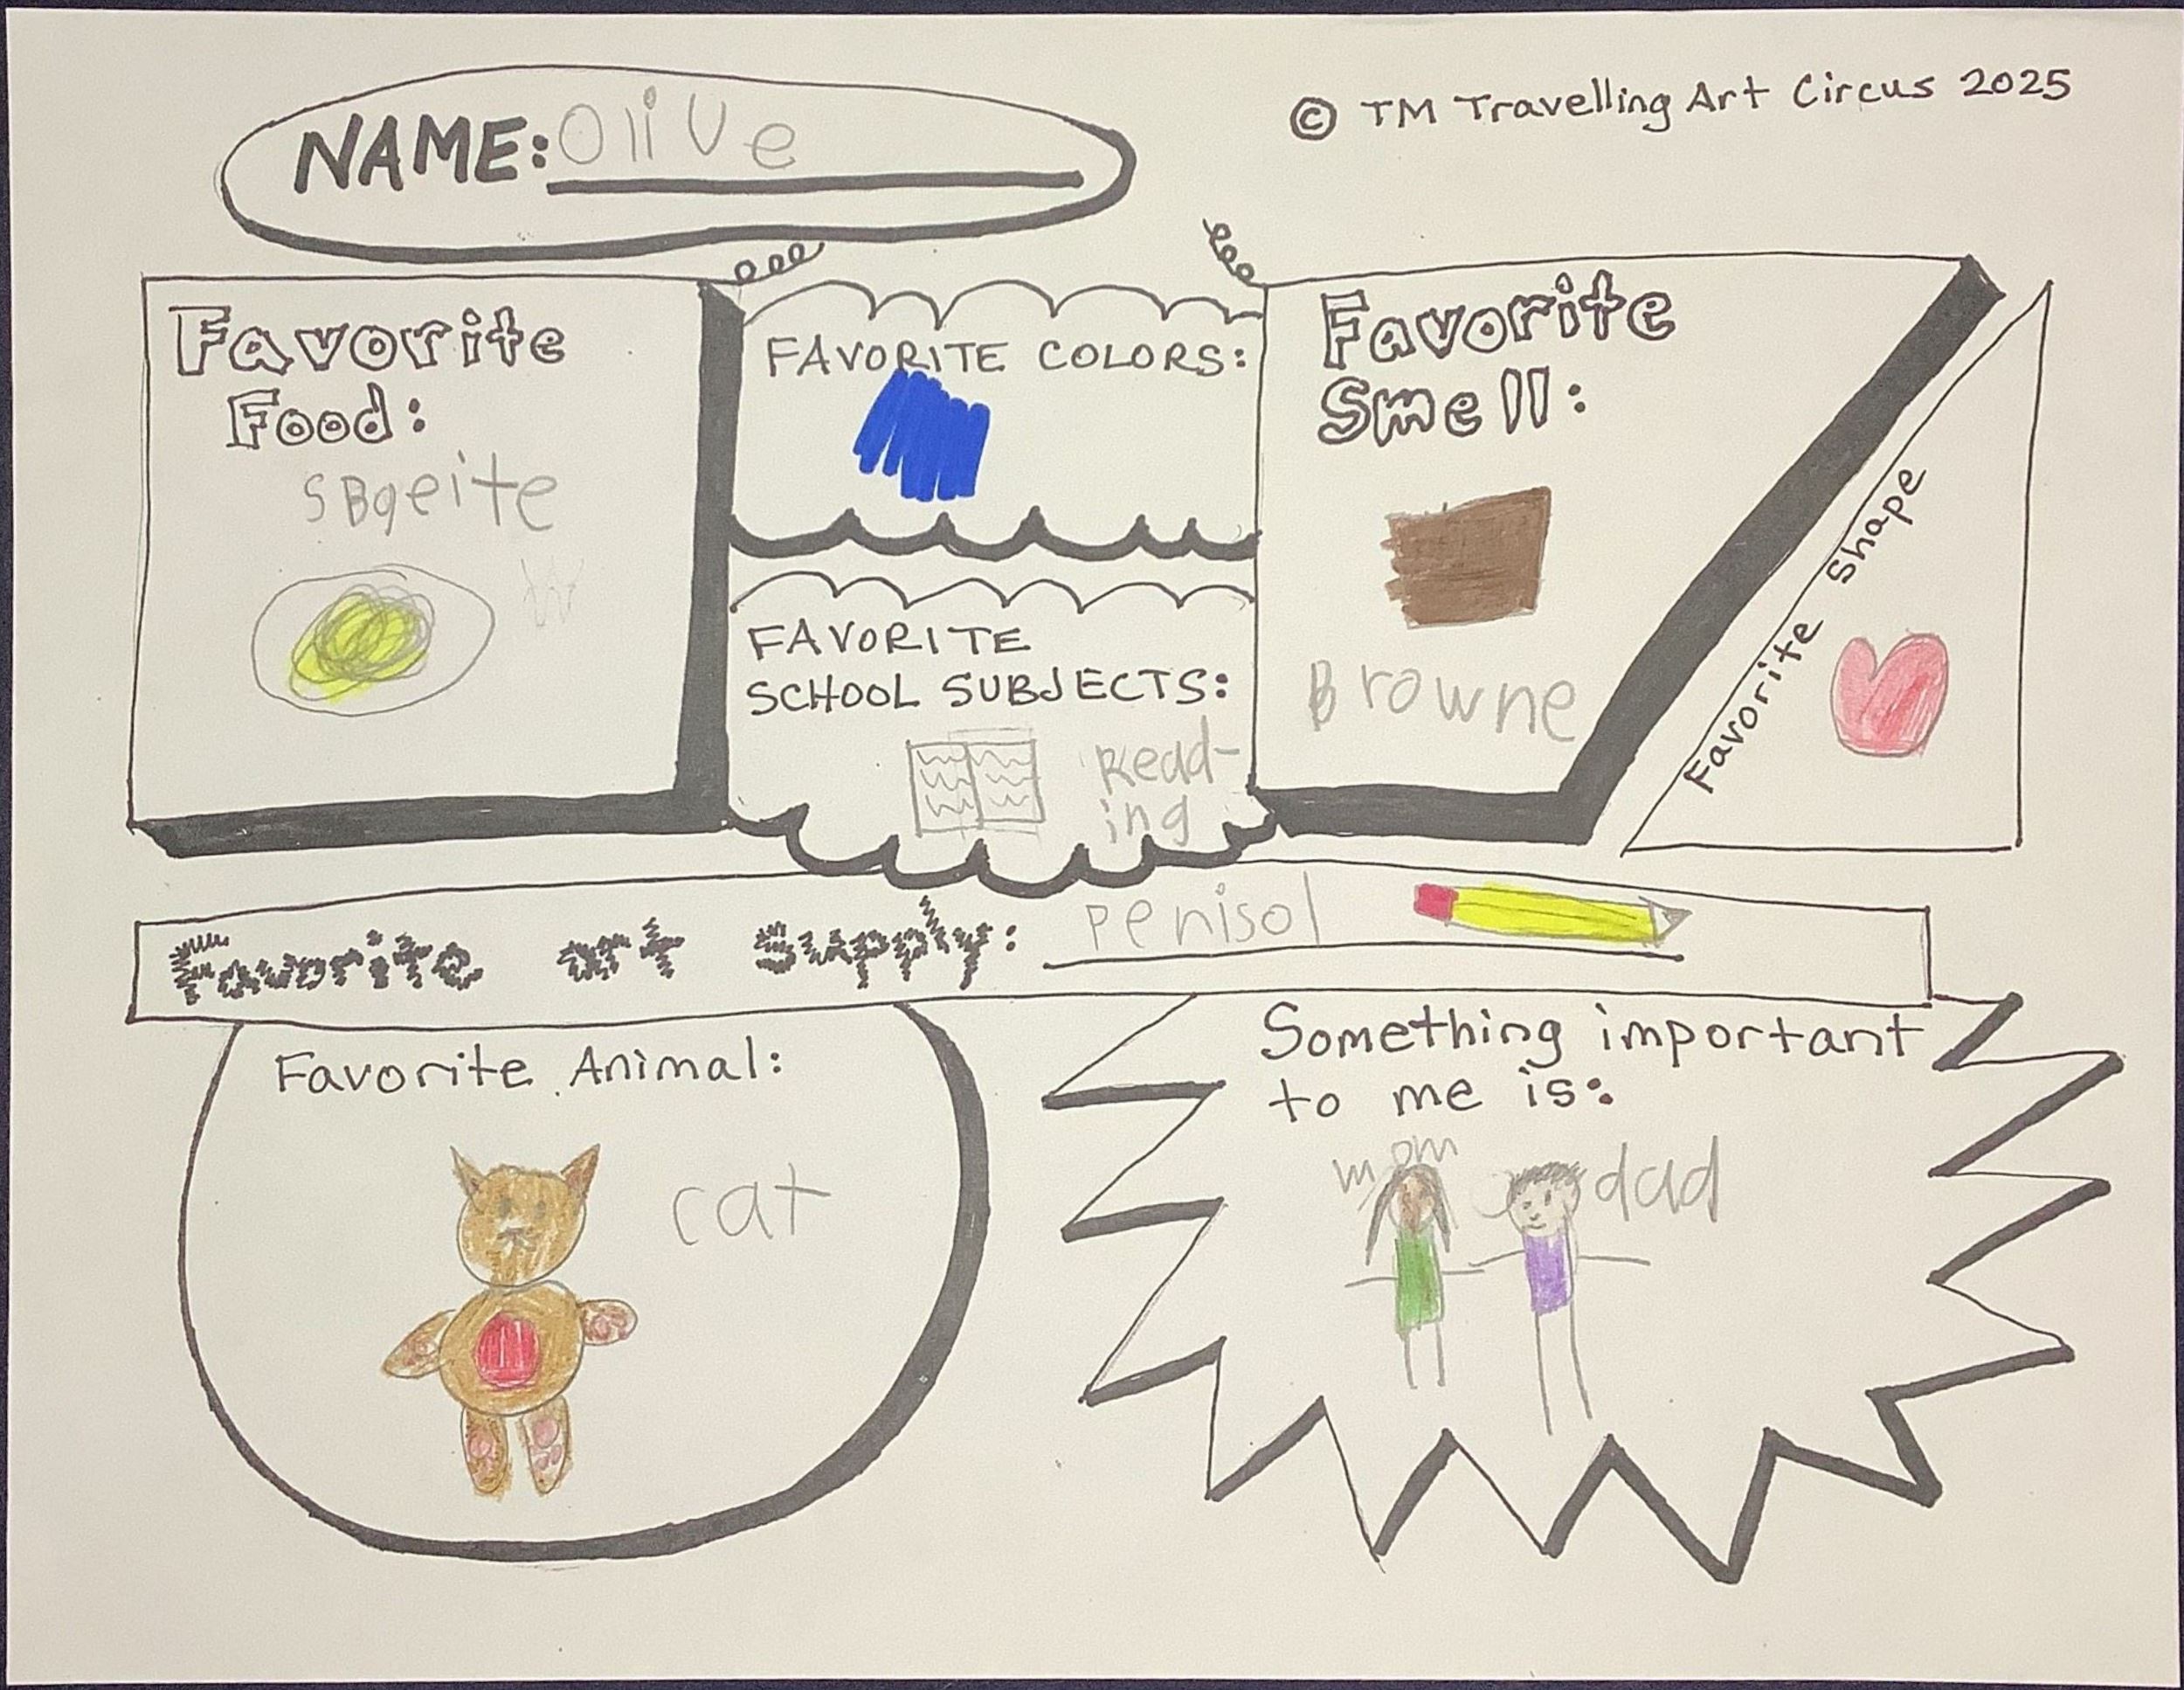 NAME: Olive
© TM Travelling Art Circus 2025
Favorite
Food:
SBgeite
FAVORITE COLORS:
FAVORITE
SCHOOL SUBJECTS:
Read-
ing
Favorite
Smell:
Browne
Favorite Shape
Favorite art Supply: Penisol
Favorite Animal:
cat
Something important
to me is:
mom dad